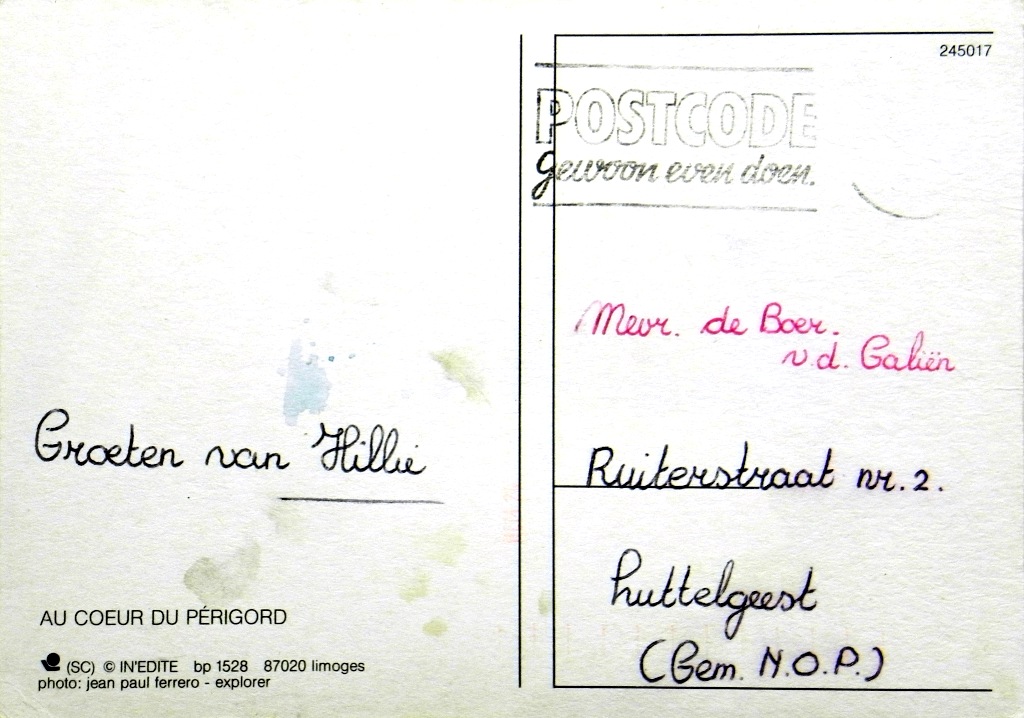 245017
POSTCODE
gewoon even doen.
Mevr. de Boer.
v.d. Galiën
Groeten van Hillie
Ruiterstraat nr. 2.
Luttelgeest
(Gem. N.O.P.)
AU COEUR DU PÉRIGORD
(SC) © IN'EDITE bp 1528 87020 limoges
photo: jean paul ferrero - explorer